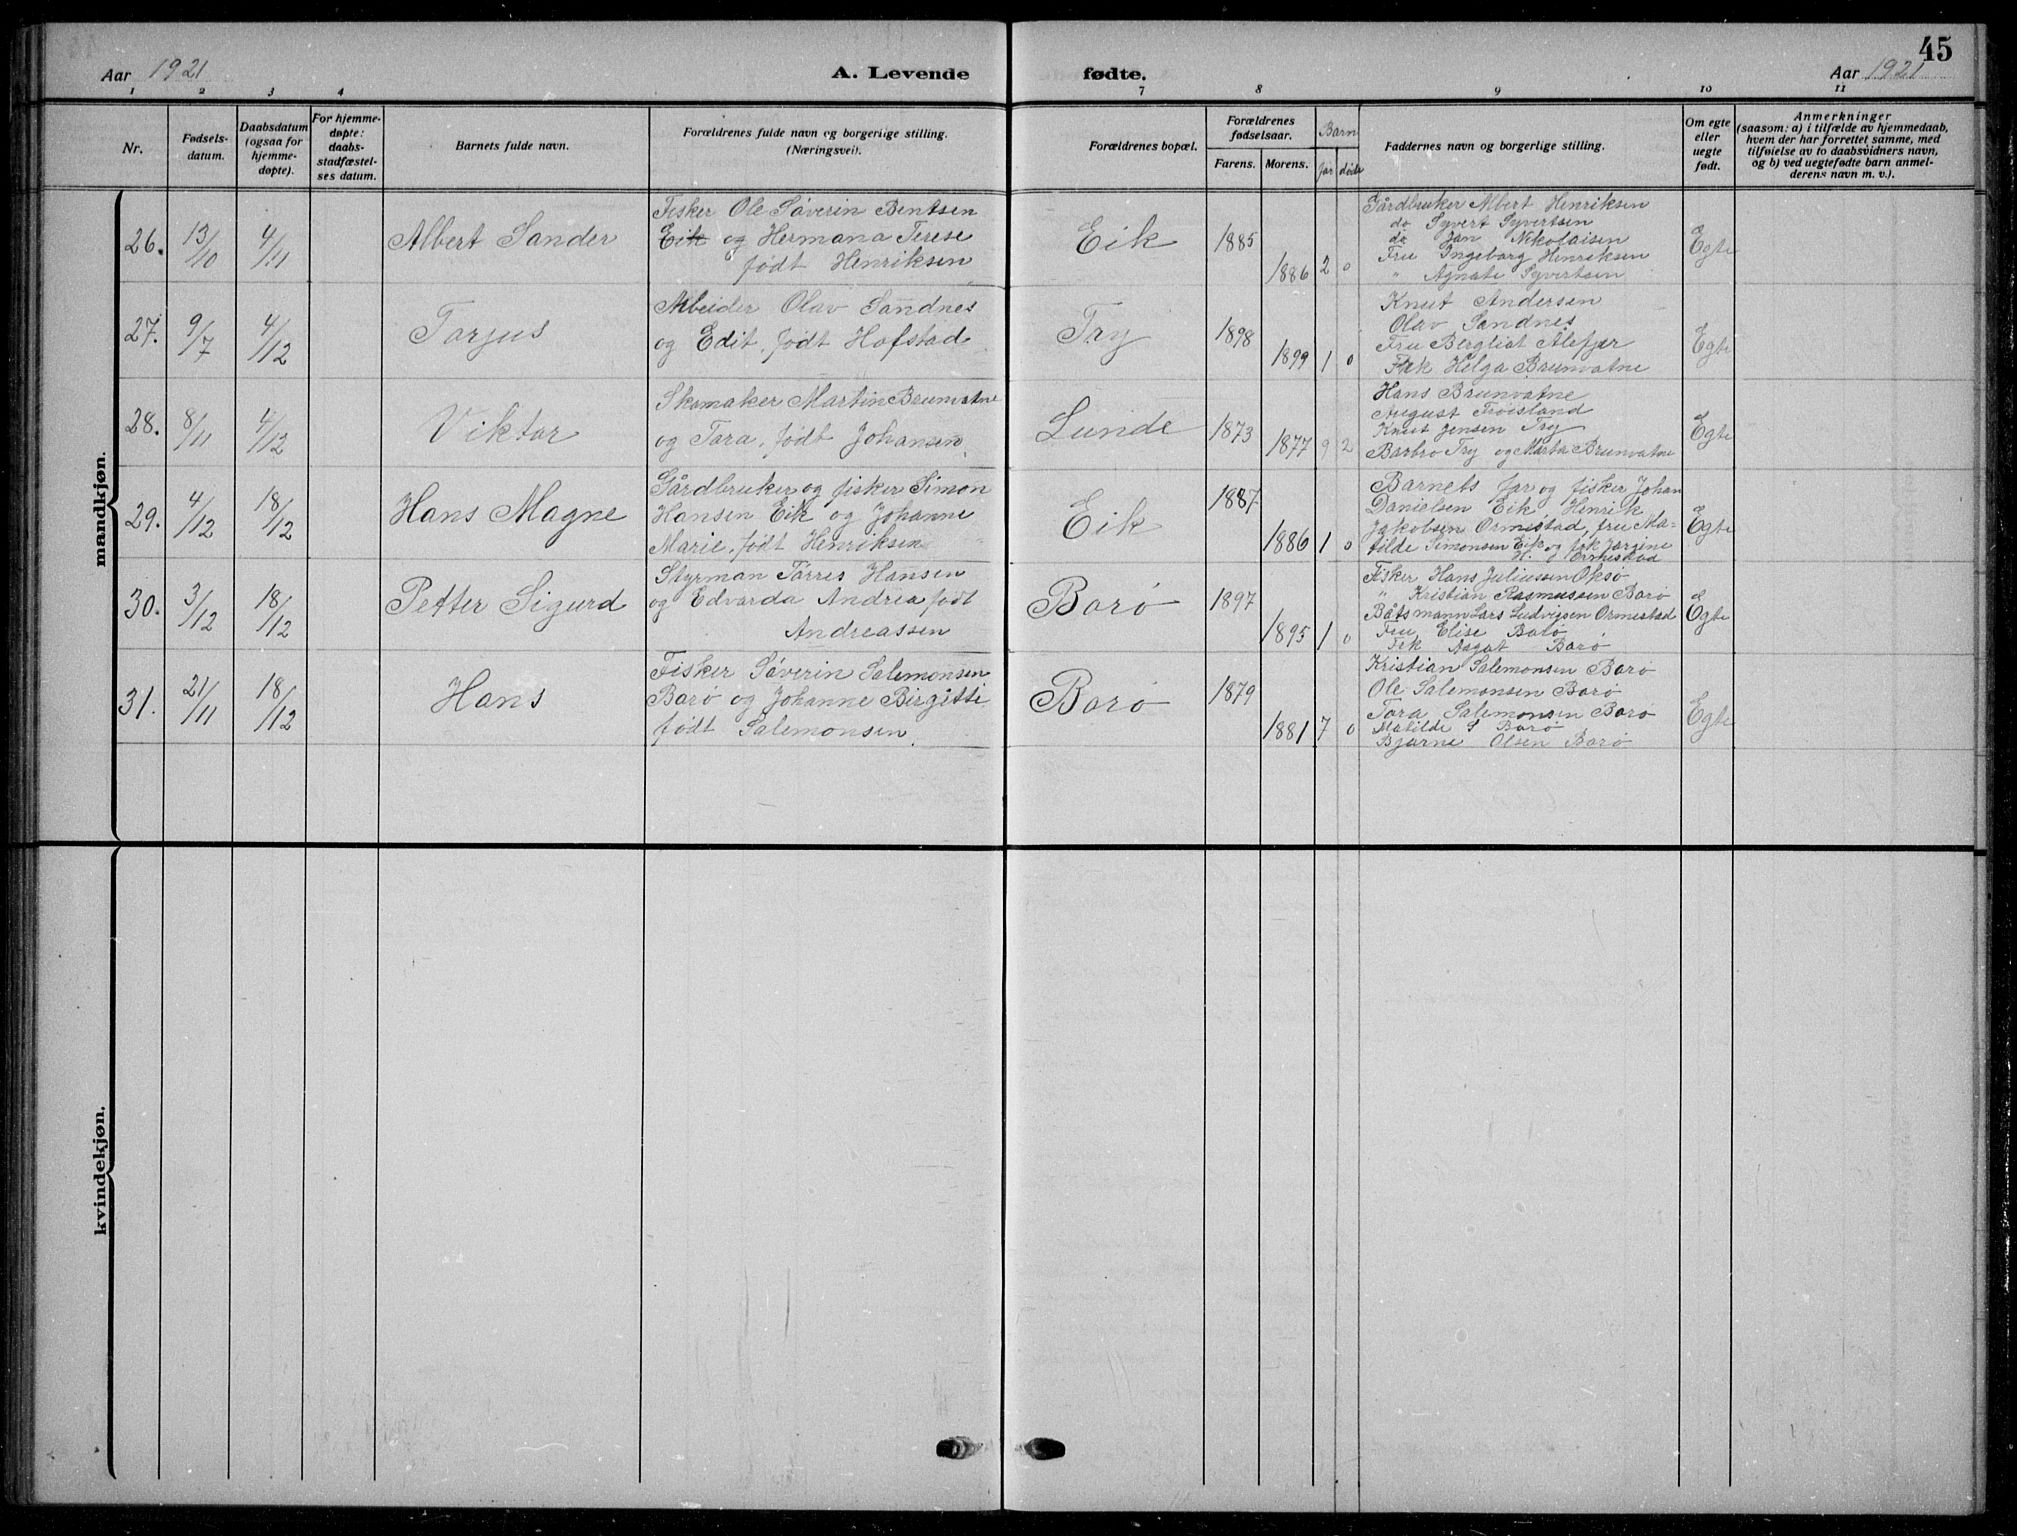 45
Aar 1921
A. Levende fødte.
Aar 1921
1 2 3 4 7 8 9 10 11
Nr.
Fødsels-
datum.
Daabsdatum
(ogsaa for
hjemme-
døpte).
For hjemme-
døpte:
daabs-
stadfæstel-
ses datum.
Barnets fulde navn.
Forældrenes fulde navn og borgerlige stilling.
(Næringsvei).
Forældrenes bopæl.
Forældrenes
fødselsaar.
Farens. Morens.
Barn
før døde
Faddernes navn og borgerlige stilling.
Om egte
eller
uegte
født.
Anmerkninger
(saasom: a) i tilfælde av hjemmedaab,
hvem der har forrettet samme, med
tilføielse av to daabsvidners navn,
og b) ved uegtefødte barn anmel-
derens navn m. v.).
mandkjøn.
26. 13/10 4/11 Albert Sander
Fisker Ole Såverin Bentsen
Eik og Hermana Terese
født Henriksen
Eik 1885 1886 2 0
Gårdbruker Albert Henriksen
do Syvert Syvertsen
do Jan Nikolaisen
Fru Ingeborg Henriksen
" Agnate Syvertsen
Egte
27. 9/7 4/12 Torjus
Arbeider Olav Sandnes
og Edit, født Hofstad
Try 1898 1899 1 0
Knut Andersen
Olav Sandnes
Fru Bergliot Ålefjær
Frk Helga Brunvatne
Egte
28. 8/11 4/12 Viktor
Skomaker Martin Brunvatne
og Tora, født Johansen
Lunde 1873 1877 9 2
Hans Brunvatne
August Trøisland
Knut Jensen Try
Barbro Try og Marta Brunvatne
Egte
29. 4/12 18/12 Hans Magne
Gårdbruker og fisker Simon
Hansen Eik og Johanne
Marie, født Henriksen
Eik 1887 1886 1 0
Barnets far og fisker Johan
Danielsen Eik, Henrik
Jakobsen Ormestad, fru Ma-
tilde Simonsen Eik og frk Jørgine
Ormestad
Egte
30. 3/12 18/12 Petter Sigurd
Styrman Tårres Hansen
og Edvarda Andrea født
Andreassen
Borø 1897 1895 1 0
Fisker Hans Juliussen Oksø
" Kristian Rasmussen Borø
Båtsmann Lars Ludvigsen Ormestad
Fru Elise Borø
Frk Aagot Borø
Egte
31. 21/11 18/12 Hans
Fisker Såverin Salemonsen
Borø og Johanne Birgitti
født Salemonsen
Borø 1879 1881 7 0
Kristian Salemonsen Borø
Ole Salemonsen Borø
Tora Salemonsen Borø
Matilde S Borø
Bjarne Olsen Borø
Egte
kvindekjøn.